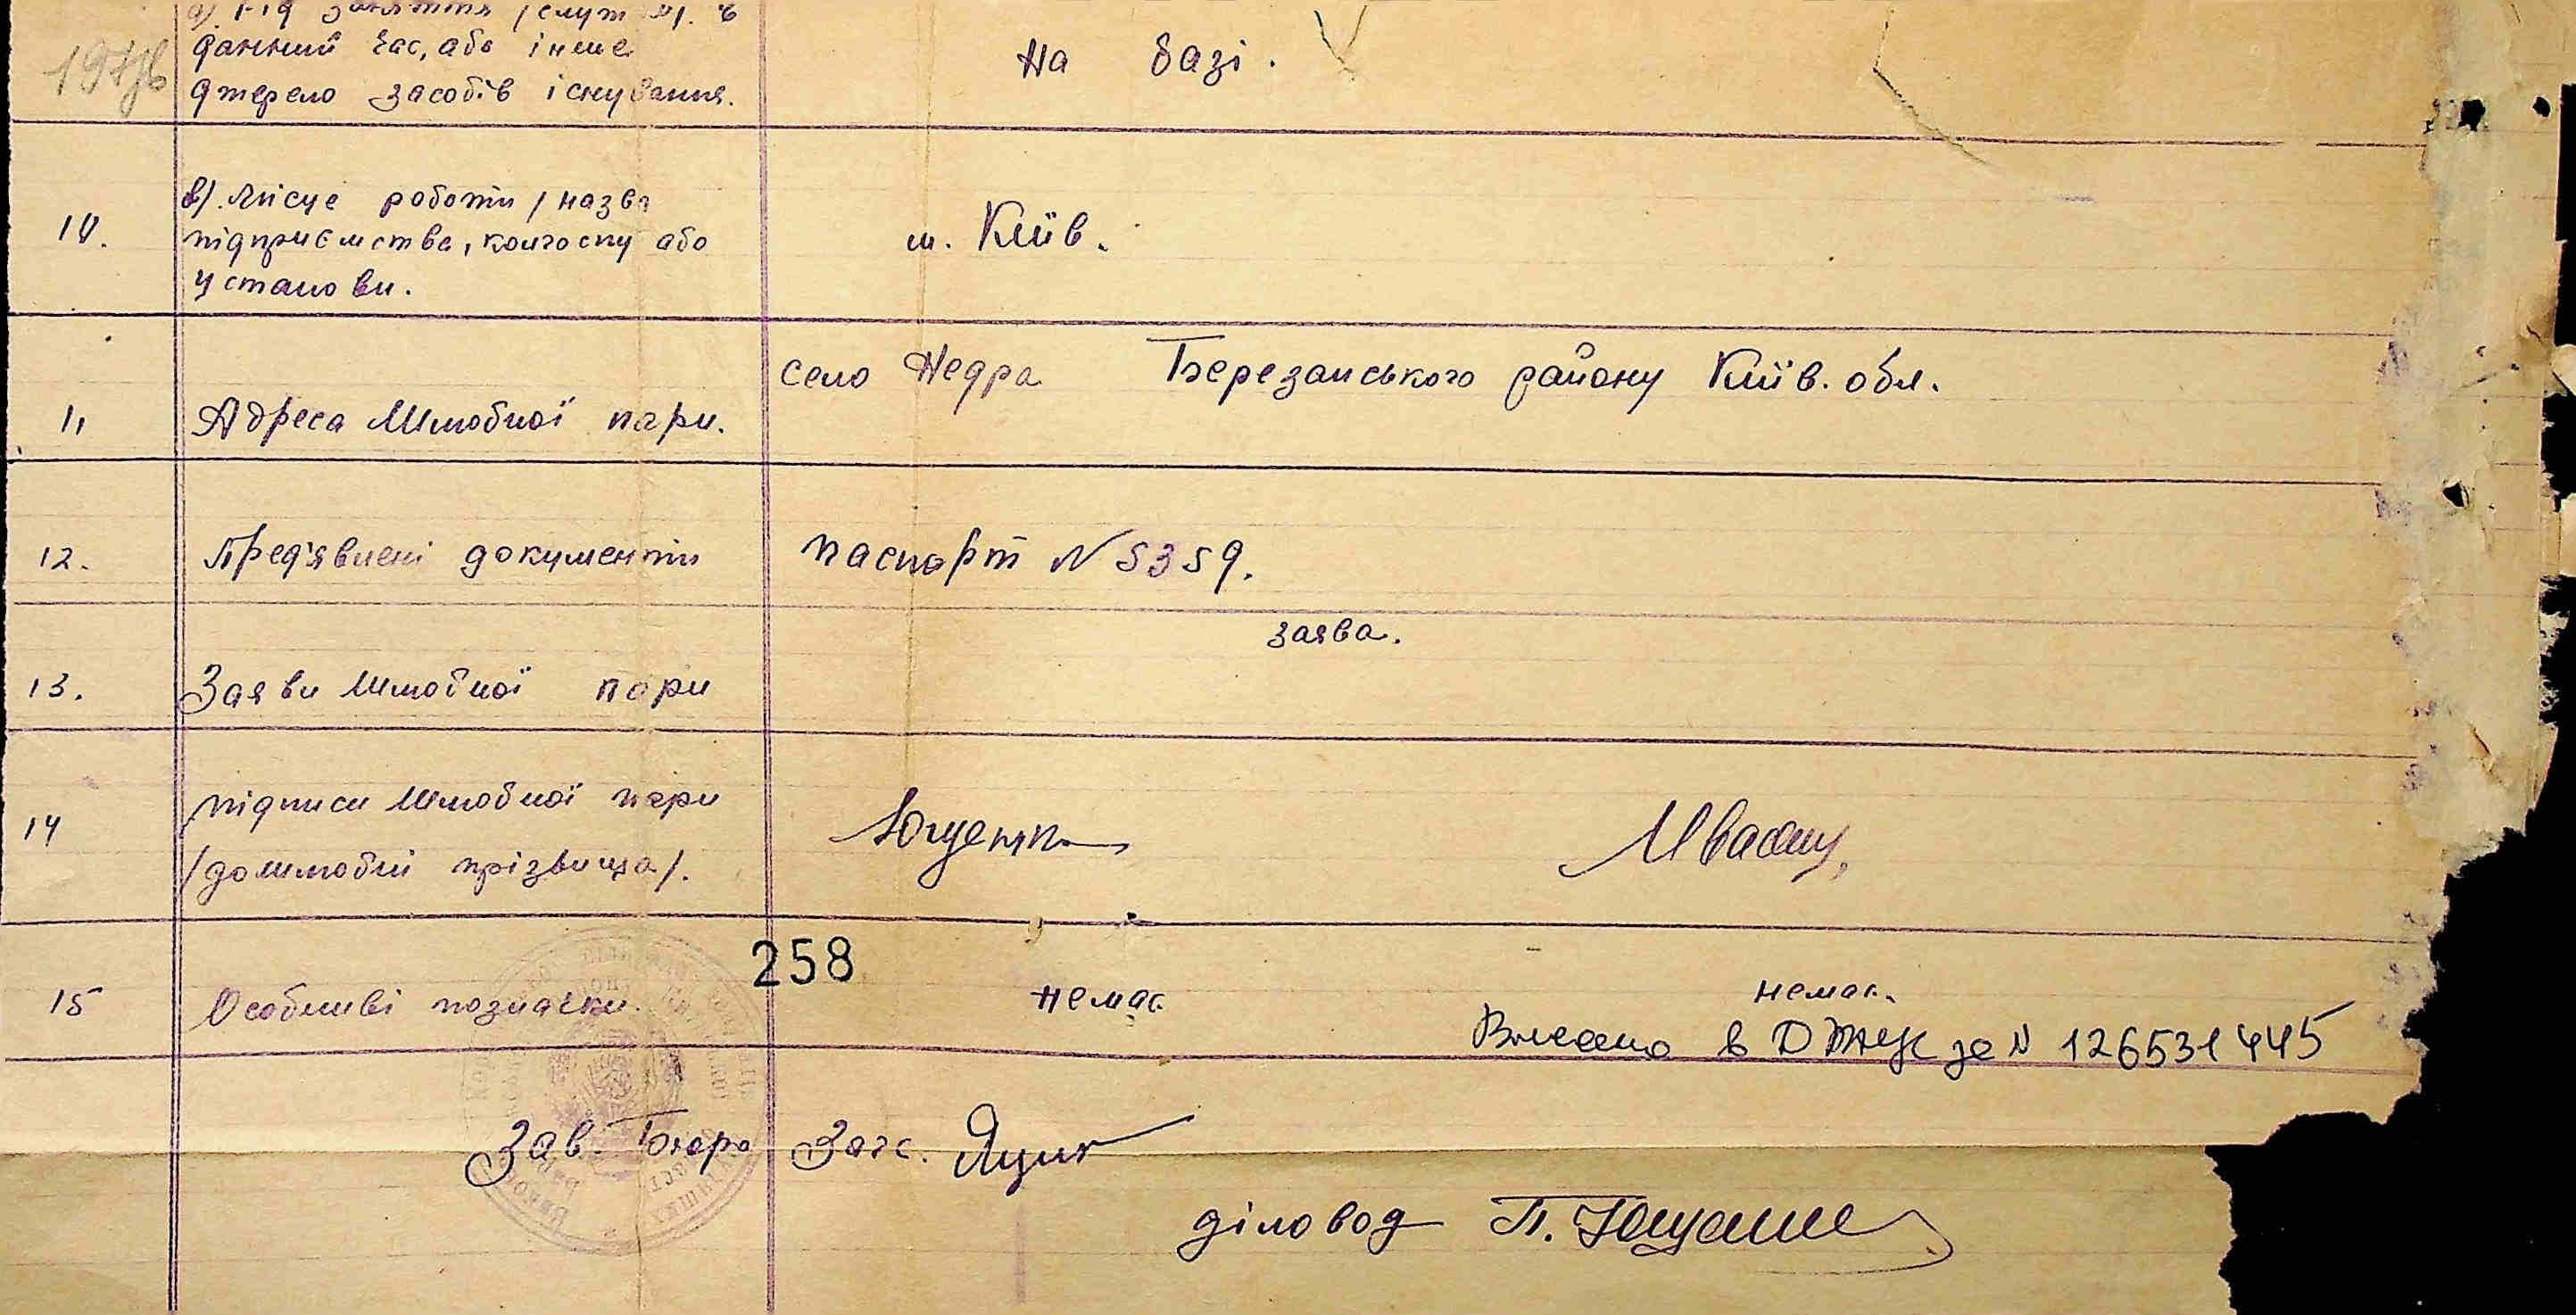 а). Рід заняття /служби/. в
данний час, або інше
джерело засобів існування.
На базі.
10.
в). Місце роботи / назва
підприємства, колгоспу або
установи.
м. Київ.
село Недра Березанського району Київ. обл.
11
Адреса Шлюбної пари.
12.
Пред'явлені документи
паспорт N 5359.
заява.
13.
Заяви Шлюбної пари
14
підписи Шлюбної пари
/дошлюбні прізвища/.
Ющенко
Иваош
258
15
Особливі позначки.
немає.
немає.
Внесено в ДРАЦС за N 126531445
Зав. Бюро Загс. Яцик
діловод П. Ющенко